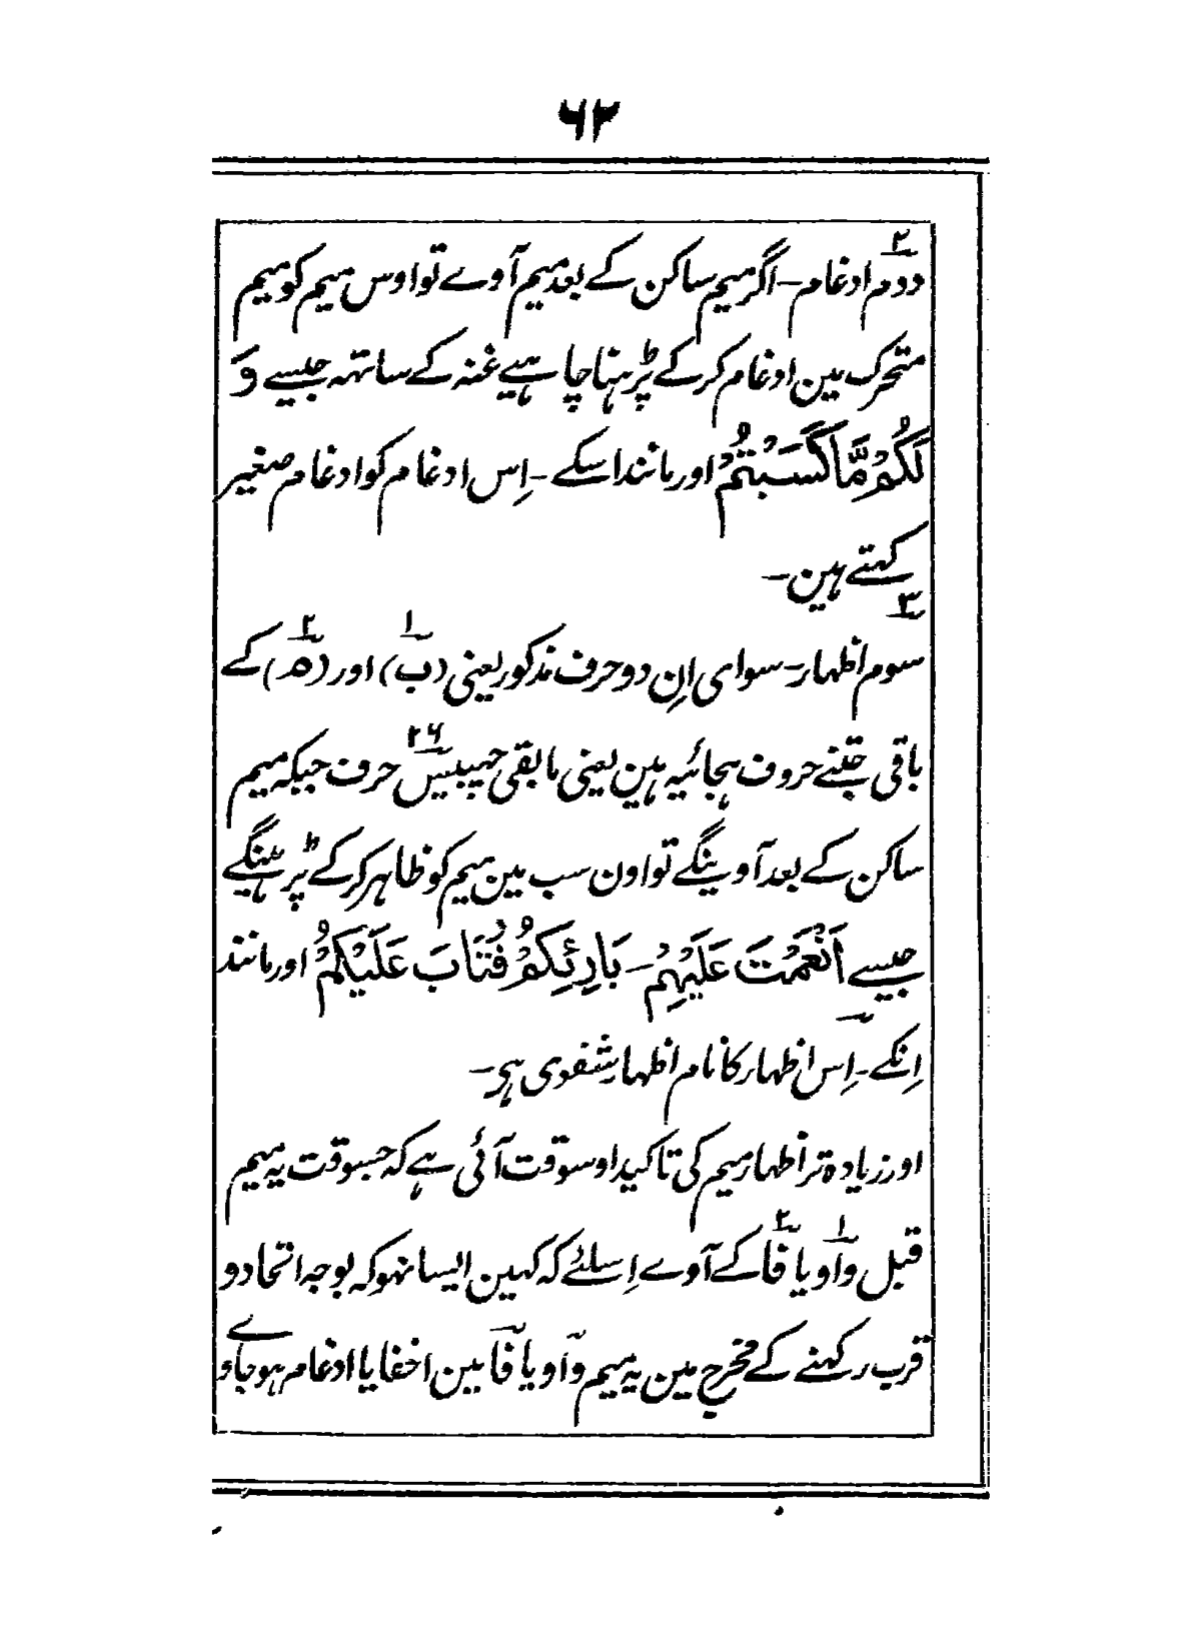 ۶۲
۲
دوم ادغام - اگر میم ساکن کے بعد میم آوے تو اوس میم کو میم
متحرک مین ادغام کرکے پڑہنا چاہیے غنہ کے ساتہہ جیسے وَ
لَكُمْ مَّا كَسَبْتُمْ اور مانند اسکے - اِس ادغام کو ادغام صغیر
کہتے ہین -
۳
سوم اظہار - سوای اِن دو حرف مذکور یعنی (ب)۱ اور (م)۲ کے
باقی جتنے حروف ہجائیہ ہین یعنی مابقی چھبیس۲۶ حرف جبکہ میم
ساکن کے بعد آوینگے تو اون سب مین میم کو ظاہر کرکے پڑہینگے
جیسے اَنْعَمْتَ عَلَيْهِمْ - بَارِئِكُمْ فَتَابَ عَلَيْكُمْ اور مانند
اِنکے - اِس اظہار کا نام اظہار شفوی ہی -
اور زیادہ تر اظہار میم کی تاکید اوسوقت آئی ہے کہ جسوقت یہ میم
قبل واو۱ یا فا۲ کے آوے اِسلئے کہ کہین ایسا نہو کہ بوجہ اتحاد و
قرب رکہنے کے مخرج مین یہ میم واو یا فا مین اخفا یا ادغام ہو جاوے